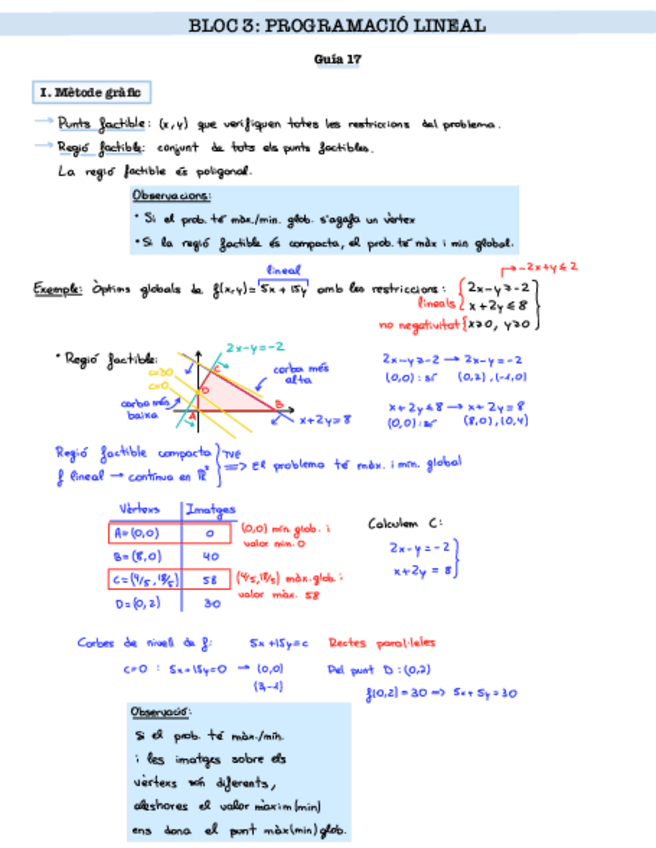 BLOC 3: PROGRAMACIÓ LINEAL
Guía 17
I. Mètode gràfic
→ Punts factible: (x,y) que verifiquen totes les restriccions del problema.
→ Regió factible: conjunt de tots els punts factibles.
La regió factible és poligonal.
Observacions:
• Si el prob. té màx./min. glob. s'agafa un vèrtex
• Si la regió factible és compacta, el prob. té màx i min global.
lineal
→ -2x+y ≤ 2
Exemple: Òptims globals de f(x,y) = 5x + 15y amb les restriccions: 2x-y ≥ -2
lineals x+2y ≤ 8
no negativitat x≥0, y≥0
• Regió factible:
2x-y=-2
c=30
c=0
corba més alta
corba més baixa
A
B
C
D
x+2y=8
2x-y≥-2 → 2x-y=-2
(0,0): sí (0,2), (-1,0)
x+2y≤8 → x+2y=8
(0,0): sí (8,0), (0,4)
Regió factible compacta
f lineal → contínua en ℝ²
TVE
=> El problema té màx. i min. global
Vèrtexs Imatges
A=(0,0) 0
(0,0) mín glob. i valor min. 0
B=(8,0) 40
C=(4/5, 18/5) 58
(4/5, 18/5) màx. glob. i valor màx. 58
D=(0,2) 30
Calculem C:
2x-y=-2
x+2y=8
Corbes de nivell de f: 5x+15y=c Rectes paral·leles
c=0 : 5x+15y=0 → (0,0)
(3,-1)
Pel punt D: (0,2)
f(0,2)=30 => 5x+5y=30
Observació:
Si el prob. té màx./mín.
i les imatges sobre els
vèrtexs són diferents,
aleshores el valor màxim (min)
ens dona el punt màx(min) glob.